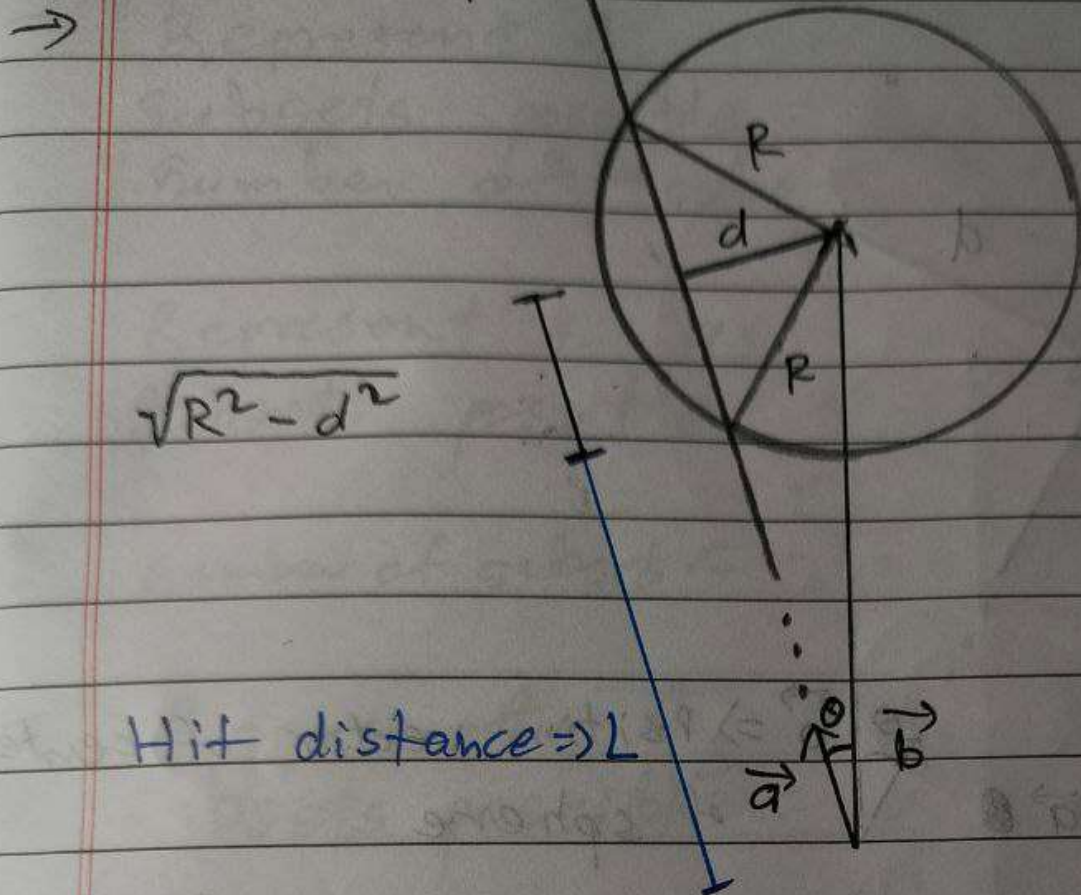 →
R
d
R
√R² - d²
Hit distance => L
θ
a→
b→